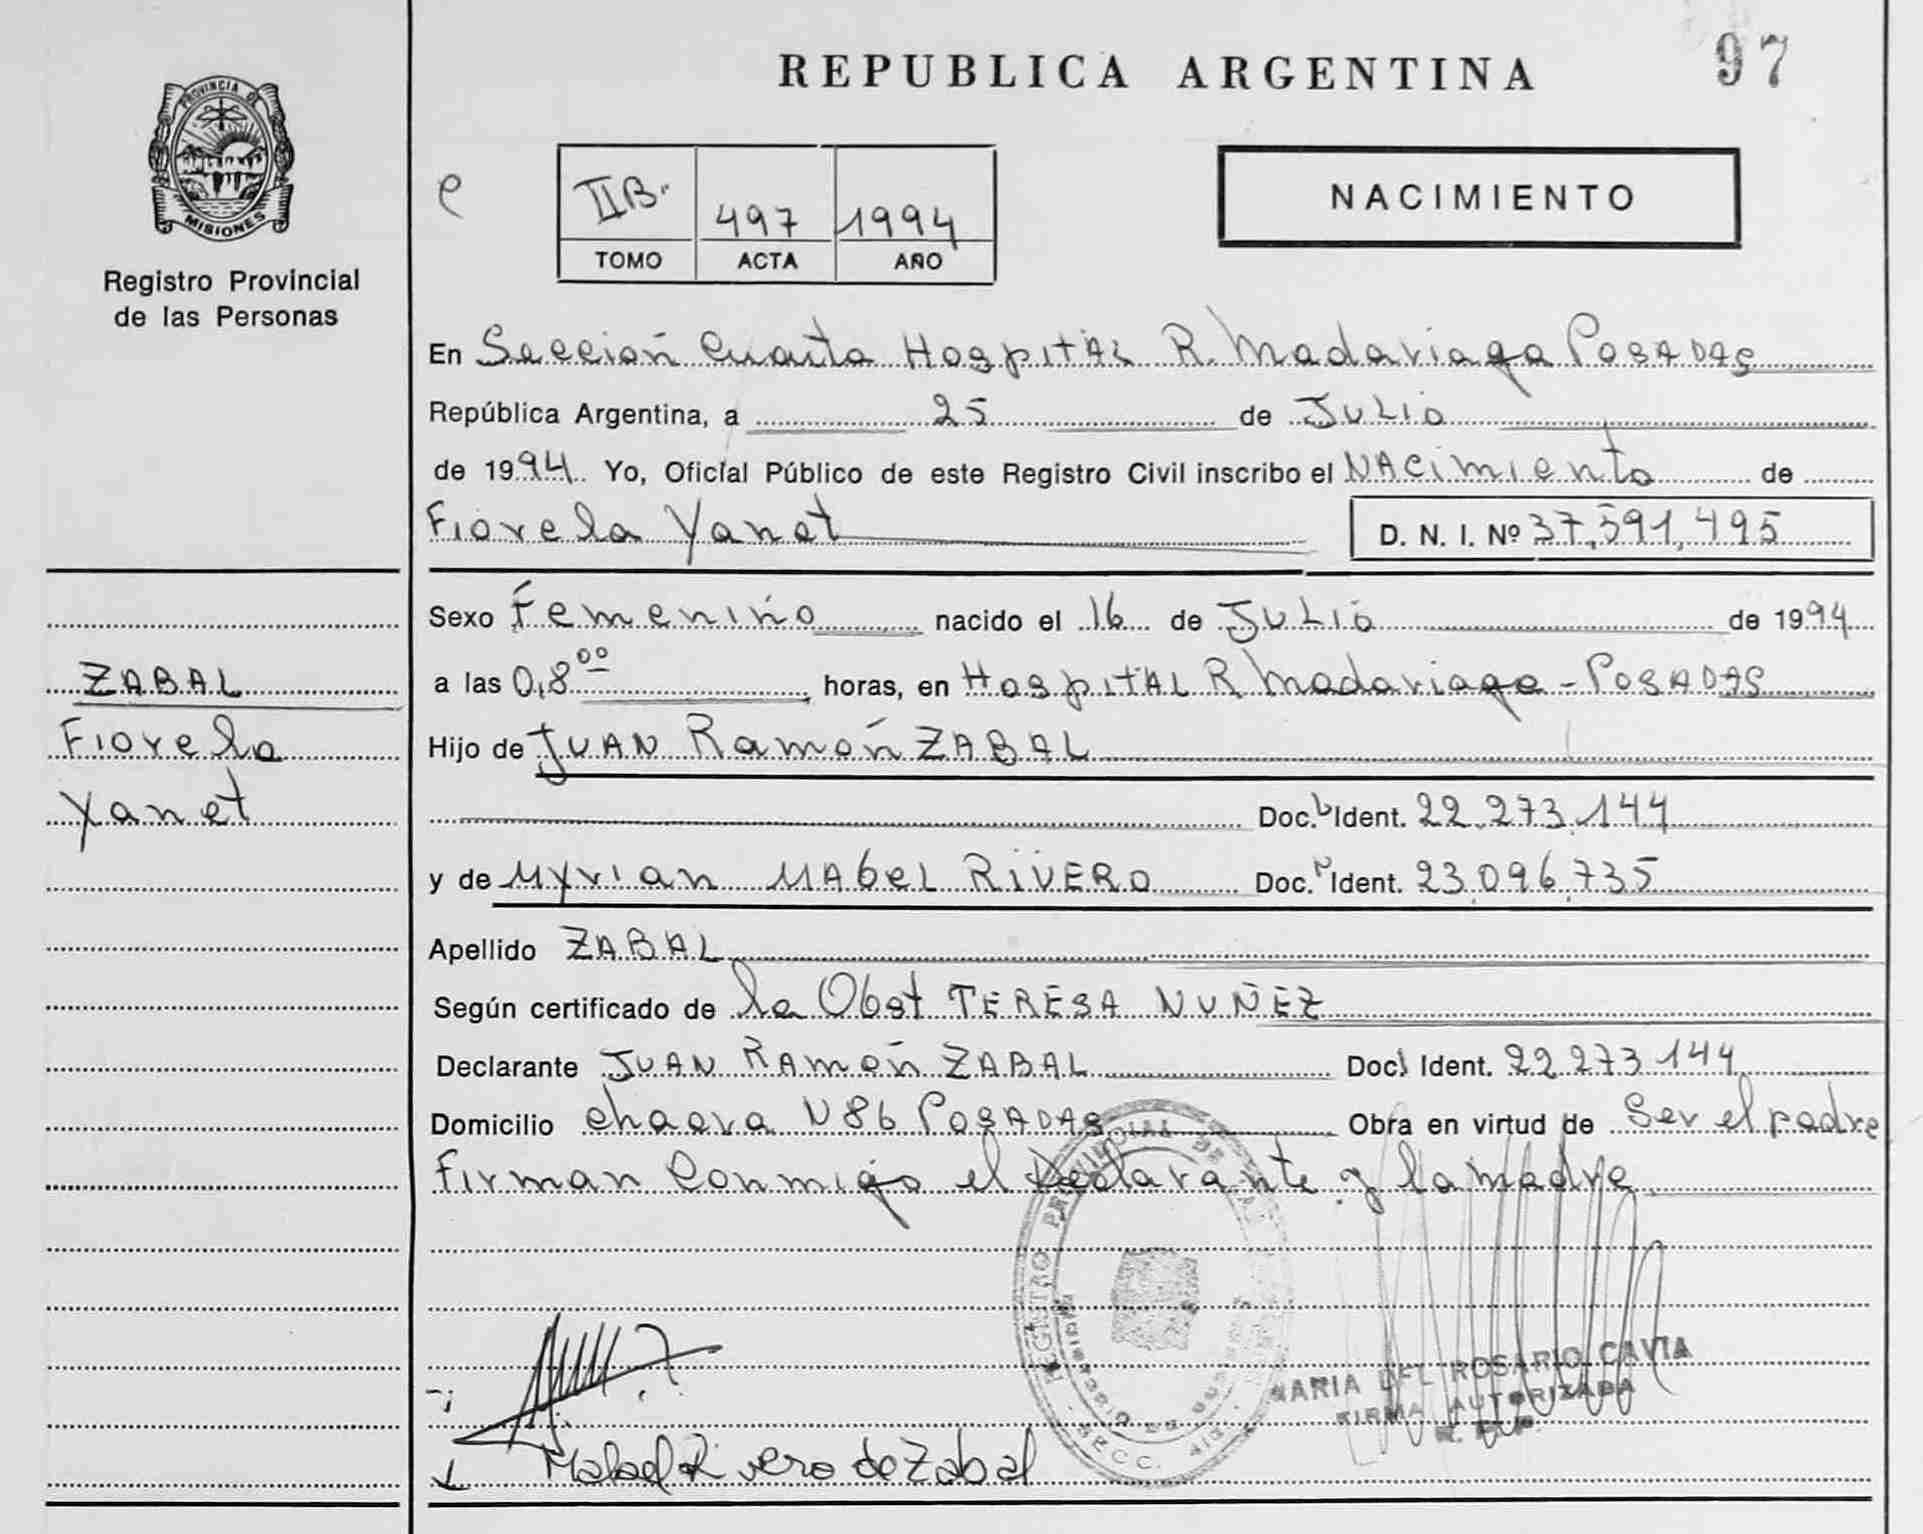 REPUBLICA ARGENTINA
97
PROVINCIA DE
MISIONES
Registro Provincial
de las Personas
IIB. 497 1994
TOMO ACTA AÑO
NACIMIENTO
En Sección Cuarta Hospital R. Madariaga Posadas
República Argentina, a 25 de Julio
de 1994. Yo, Oficial Público de este Registro Civil inscribo el NAcimiento de
Fiorela Yanet D. N. I. Nº 37,591,495
Sexo Femenino nacido el 16 de Julio de 1994
ZABAL
Fiorela
Yanet
a las 0,8 00 horas, en Hospital R Madariaga - Posadas
Hijo de Juan Ramón ZABAL
Doc. Ident. 22.273.144
y de Myrian MAbeL RiVERO Doc. Ident. 23.096.735
Apellido ZABAL
Según certificado de la Obst TERESA NUÑEZ
Declarante JUAN RAmón ZABAL Doc. Ident. 22 273 144
Domicilio chacra N 86 Posadas Obra en virtud de Ser el padre
Firman Conmigo el Declarante y la madre
REGISTRO PROVINCIAL DE
SECC. 4ta.
MARIA DEL ROSARIO CAVIA
FIRMA AUTORIZADA
Mabel Rivero de Zabal